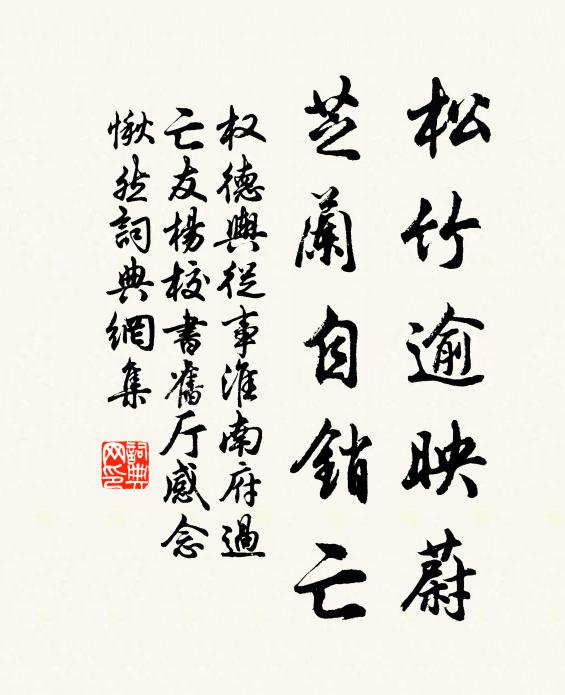 松竹逾映蔚
芝蘭自銷亡
权德輿從事淮南府過
亡友楊校書舊厅感念
愀然詞典網集
詞典
网印